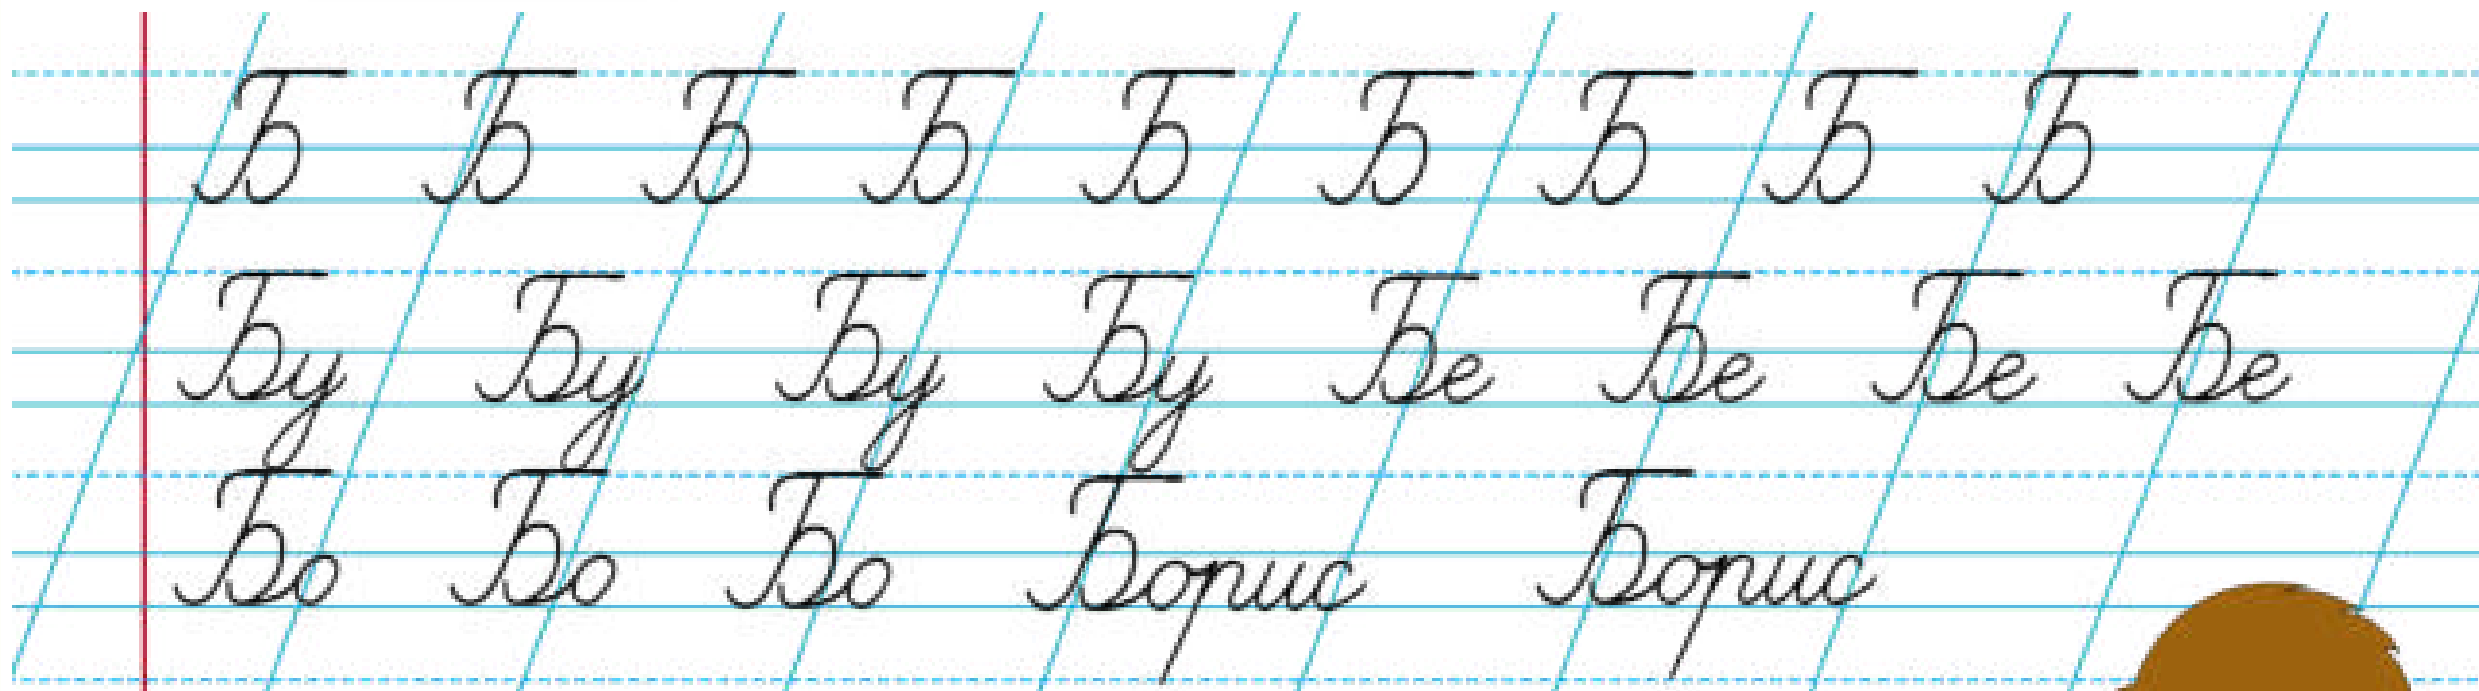 Б Б Б Б Б Б Б Б Б
Бу Бу Бу Бу Бе Бе Бе Бе
Бо Бо Бо Борис Борис